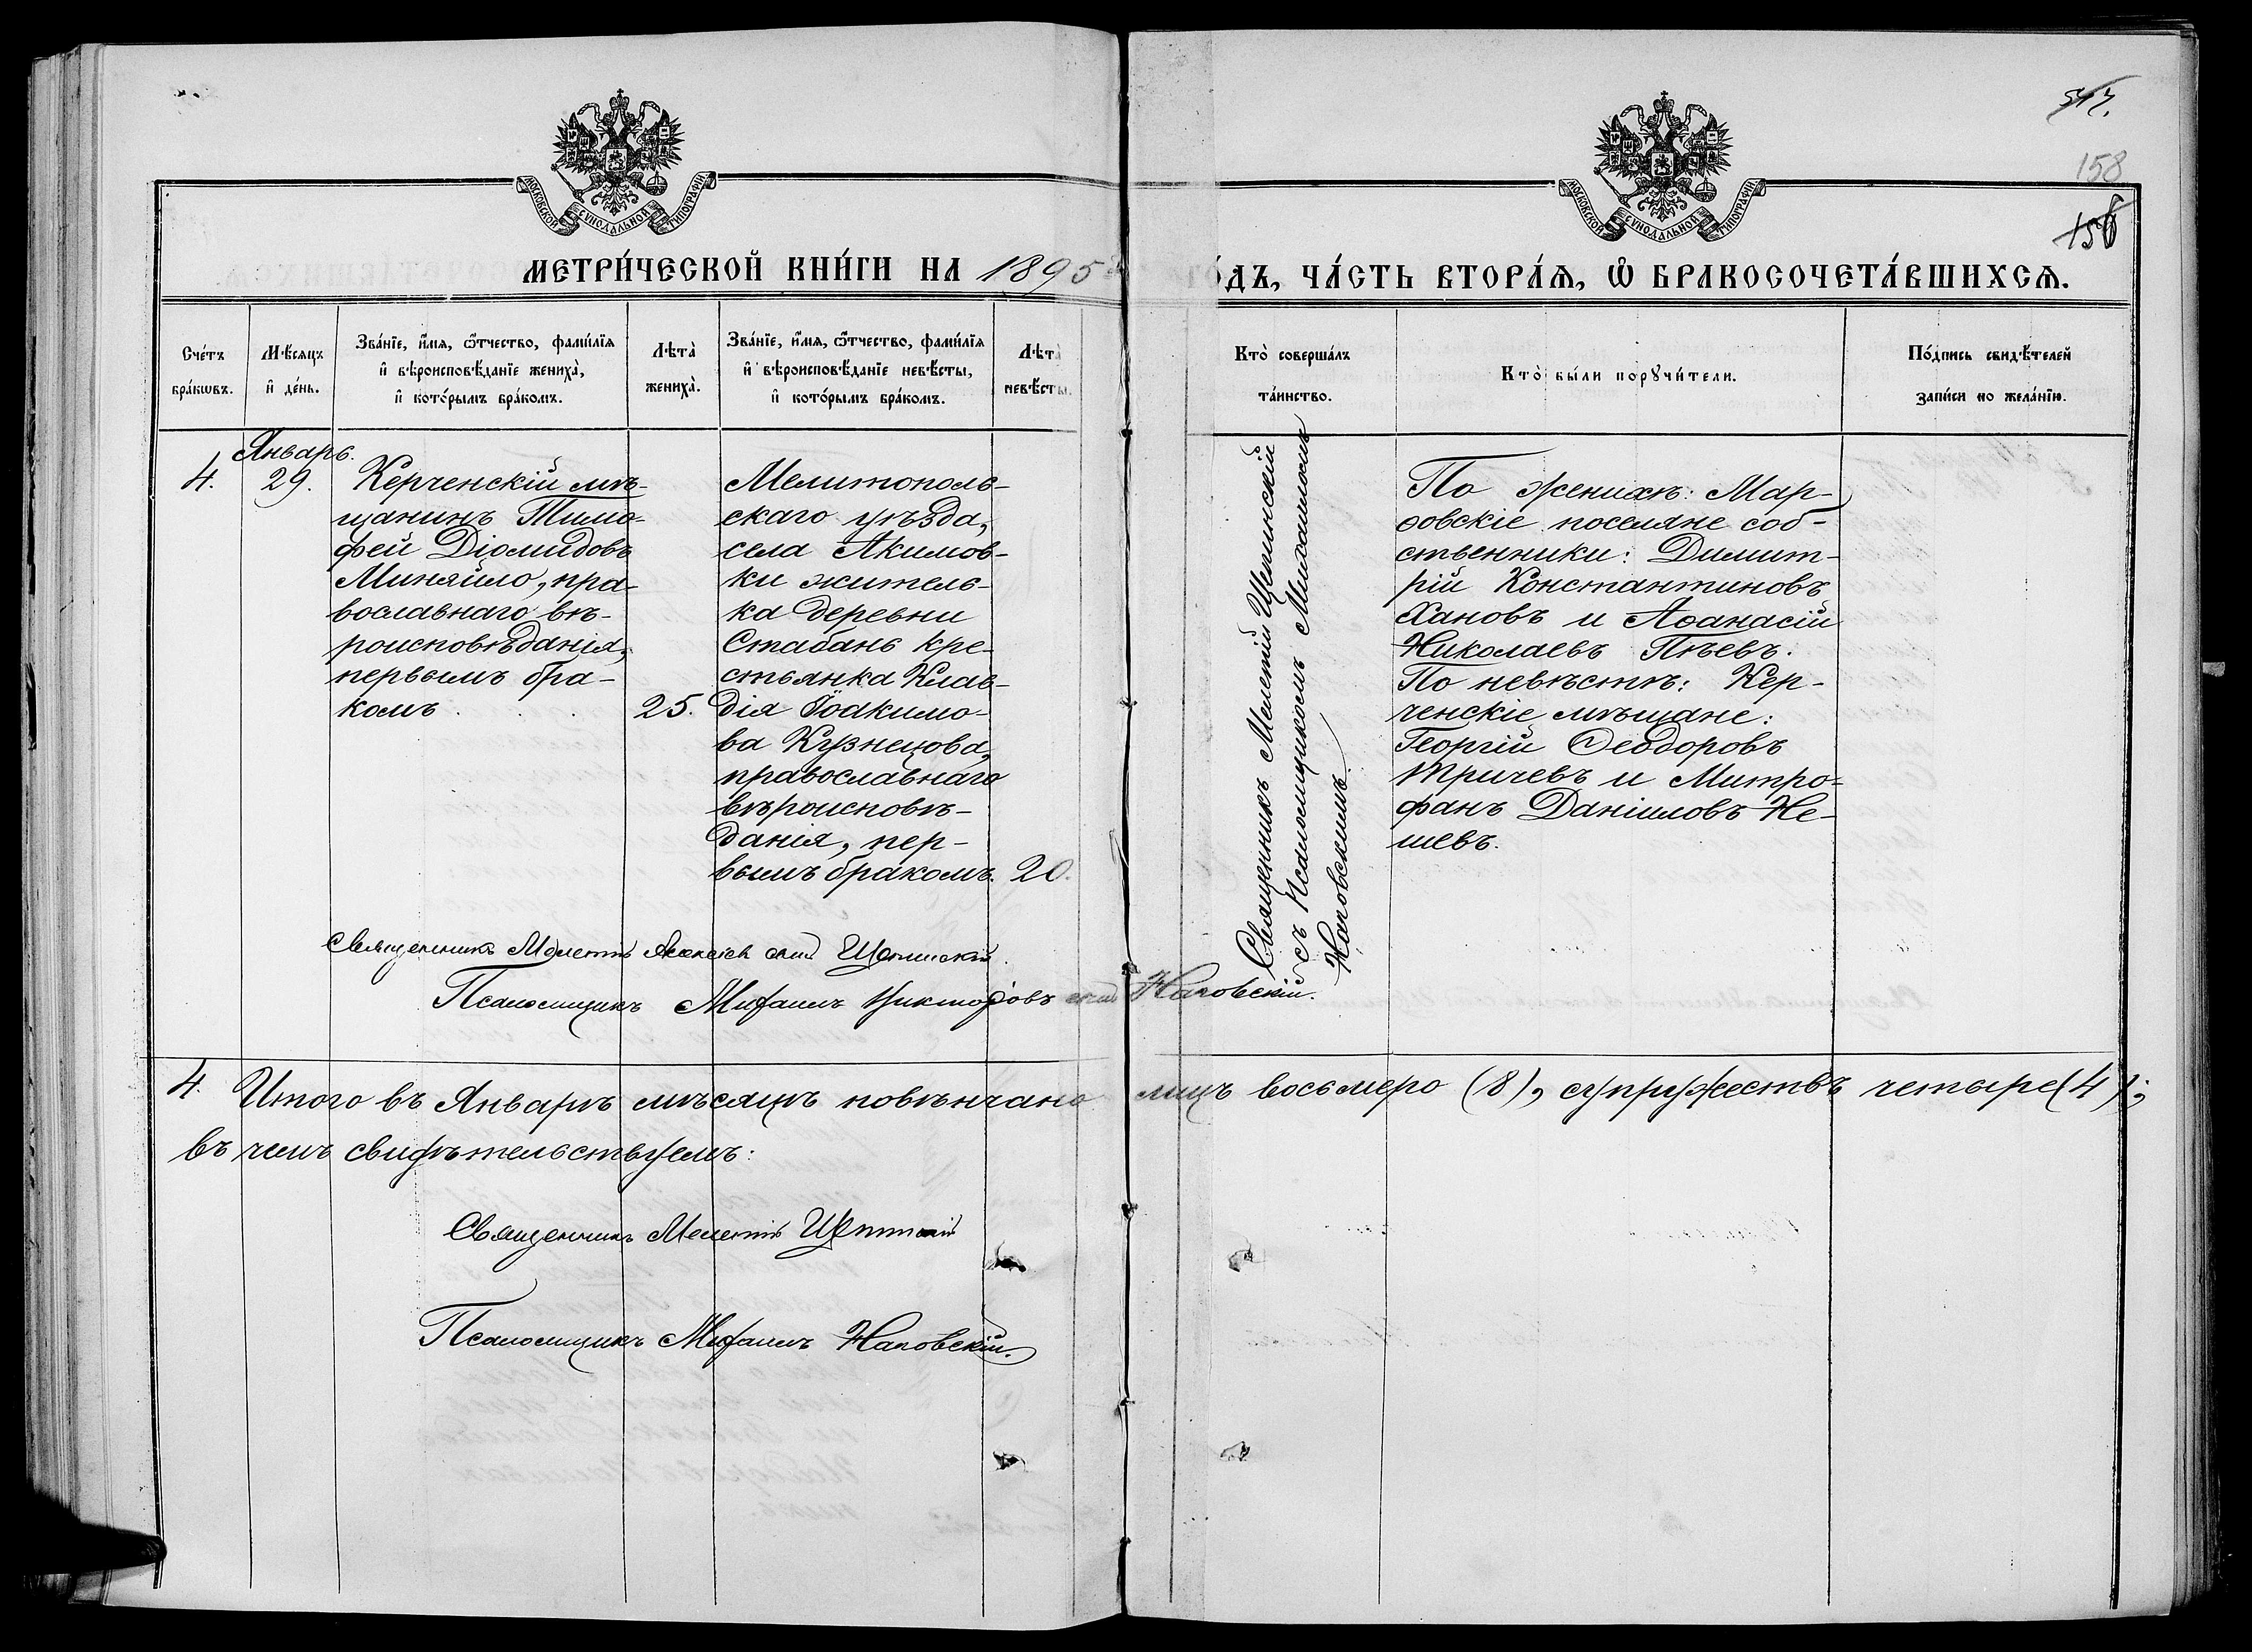 547.
158
156
МОСКОВСКОЙ СУНОДАЛЬНОЙ ТИПОГРАФІИ
МОСКОВСКОЙ СУНОДАЛЬНОЙ ТИПОГРАФІИ
МЕТРИ́ЧЕСКОЙ КНИ́ГИ НА 1895 ГО́ДЪ, ЧА́СТЬ ВТОРА́Ѧ, Ѽ БРАКОСОЧЕТА́ВШИХСѦ.
Сче́тъ
бра́кѡвъ.
Мѣ́сяцъ
и҆ де́нь.
Зва́нїе, и҆́мѧ, ѻ҆́тчество, фами́лїѧ
и҆ вѣроисповѣ́данїе жениха̀,
и҆ кото́рымъ бра́комъ.
Лѣта̀
жениха̀.
Зва́нїе, и҆́мѧ, ѻ҆́тчество, фами́лїѧ
и҆ вѣроисповѣ́данїе невѣ́сты,
и҆ кото́рымъ бра́комъ.
Лѣта̀
невѣ́сты.
Кто̀ соверша́лъ
та́инство.
Кто̀ бы́ли порꙋчи́тели.
По́дпись свидѣ́телей
за́писи по жела́нїю.
4.
Январь.
29.
Керченскій мѣ-
щанинъ Тимо-
фей Діомидовъ
Миняйло, пра-
вославнаго вѣ-
роисповѣданія,
первымъ бра-
комъ . . .
25.
Мелитополь-
скаго уѣзда,
села Акимов-
ки житель-
ка деревни
Стабань кре-
стьянка Клав-
дія Іоакимо-
ва Кузнецова,
православнаго
вѣроисповѣ-
данія, пер-
вымъ бракомъ.
20.
Священникъ Мелетій Щепинскій
съ Псаломщикомъ Михаиломъ
Наповскимъ.
По женихѣ: Мар-
ѳовскіе поселяне соб-
ственники: Димит-
рій Константиновъ
Хановъ и Аѳанасій
Николаевъ Пѣевъ.
По невѣстѣ: Кер-
ченскіе мѣщане:
Георгій Ѳеодоровъ
Тричевъ и Митро-
фанъ Даніиловъ Не-
шевъ.
Священникъ Мелетій Алексіев сынъ Щепинскій.
Псаломщикъ Михаилъ Викторовъ сынъ Наповскій.
4. Итого въ Январѣ мѣсяцѣ повѣнчано лицъ восьмеро (8), супружествъ четыре (4);
въ чемъ свидѣтельствуемъ:
Священникъ Мелетій Щепинскій
Псаломщикъ Михаилъ Наповскій.